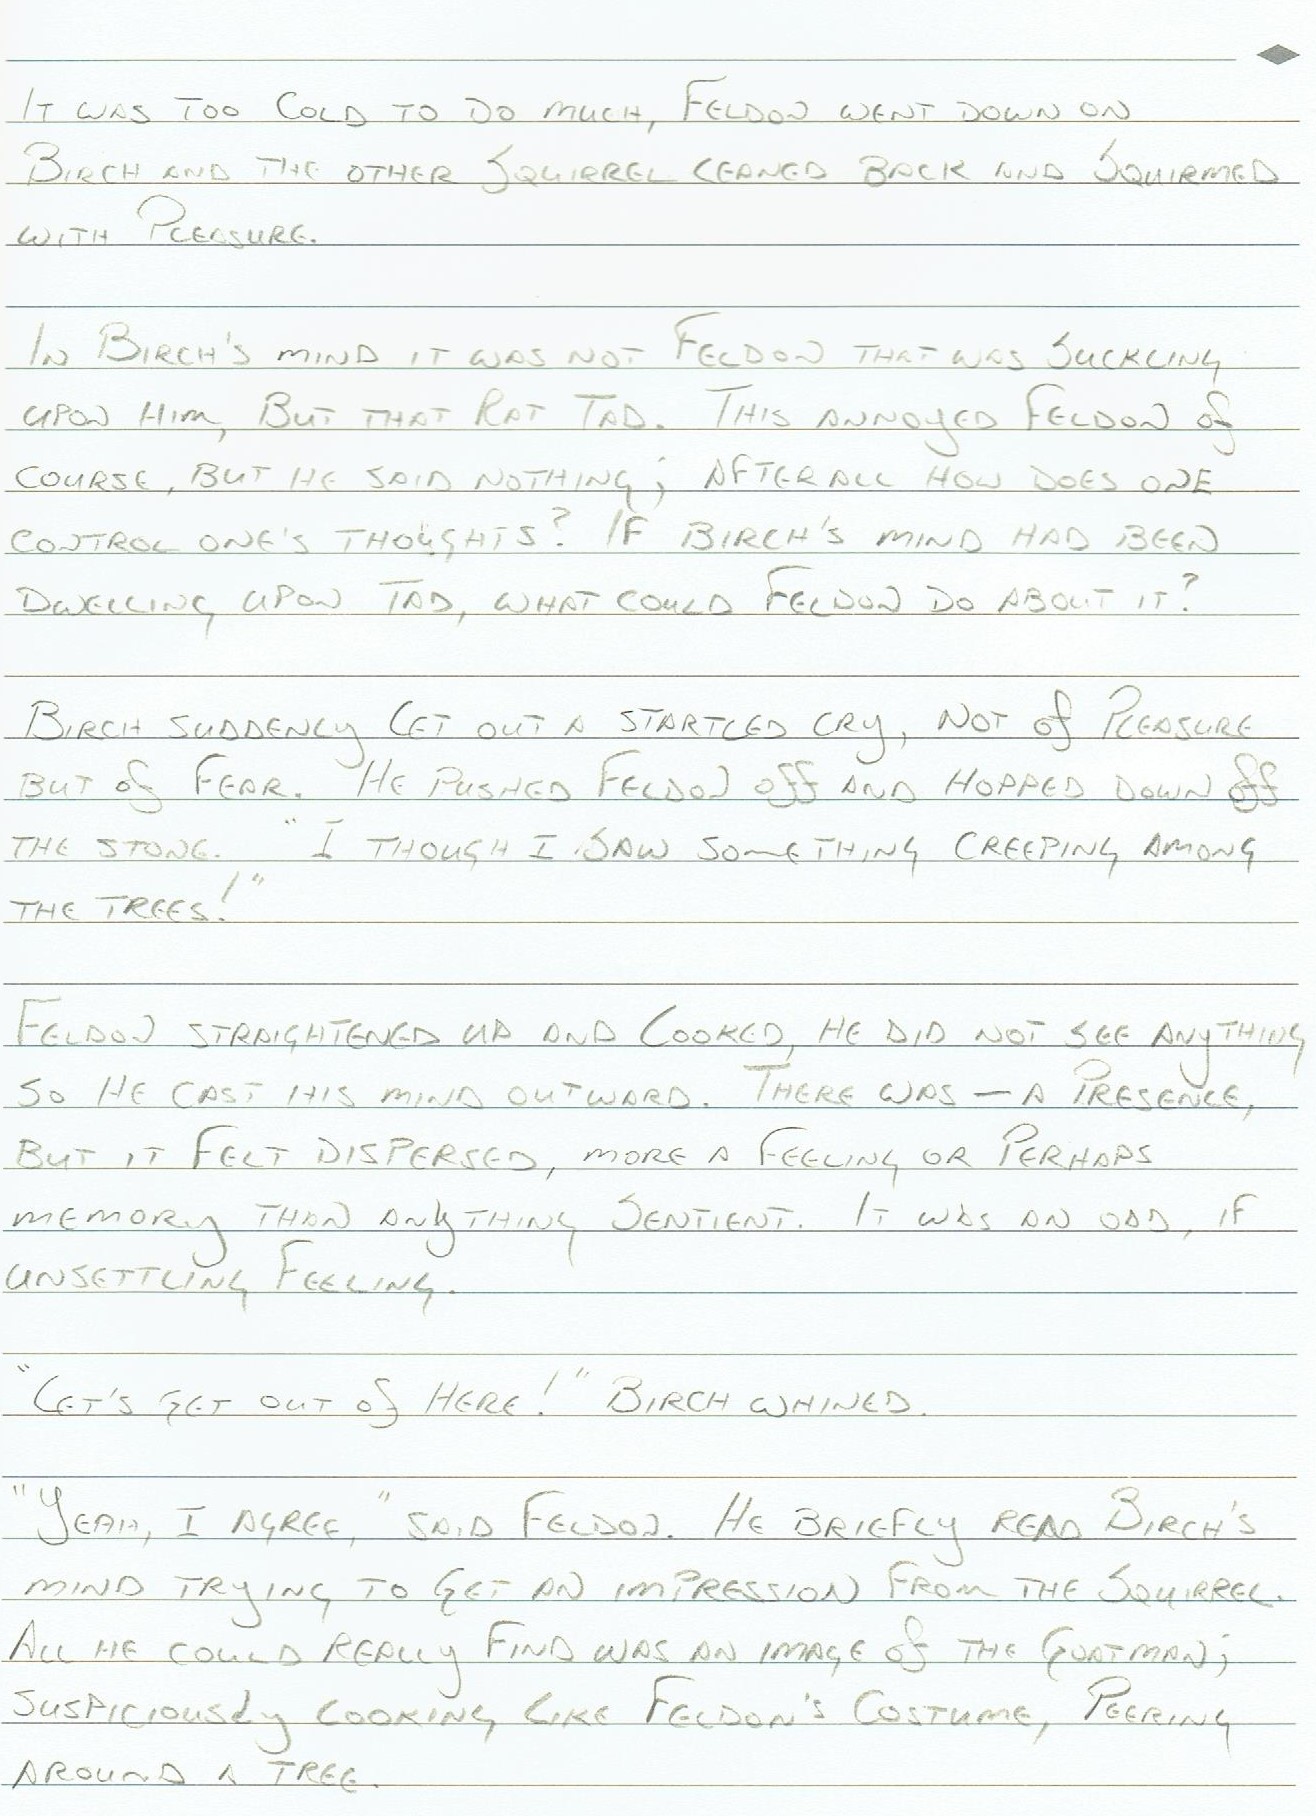 It was too cold to do much, Feldon went down on
Birch and the other squirrel leaned back and squirmed
with pleasure.
In Birch's mind it was not Feldon that was suckling
upon him, but that rat Tad. This annoyed Feldon of
course, but he said nothing; after all how does one
control one's thoughts? If Birch's mind had been
dwelling upon Tad, what could Feldon do about it?
Birch suddenly let out a startled cry, not of pleasure
but of fear. He pushed Feldon off and hopped down off
the stone. "I though I saw something creeping among
the trees!"
Feldon straightened up and looked, he did not see anything
so he cast his mind outward. There was — a presence,
but it felt dispersed, more a feeling or perhaps
memory than anything sentient. It was an odd, if
unsettling feeling.
"Let's get out of here!" Birch whined.
"Yeah, I agree," said Feldon. He briefly read Birch's
mind trying to get an impression from the squirrel.
All he could really find was an image of the Goatman;
suspiciously looking like Feldon's costume, peering
around a tree.